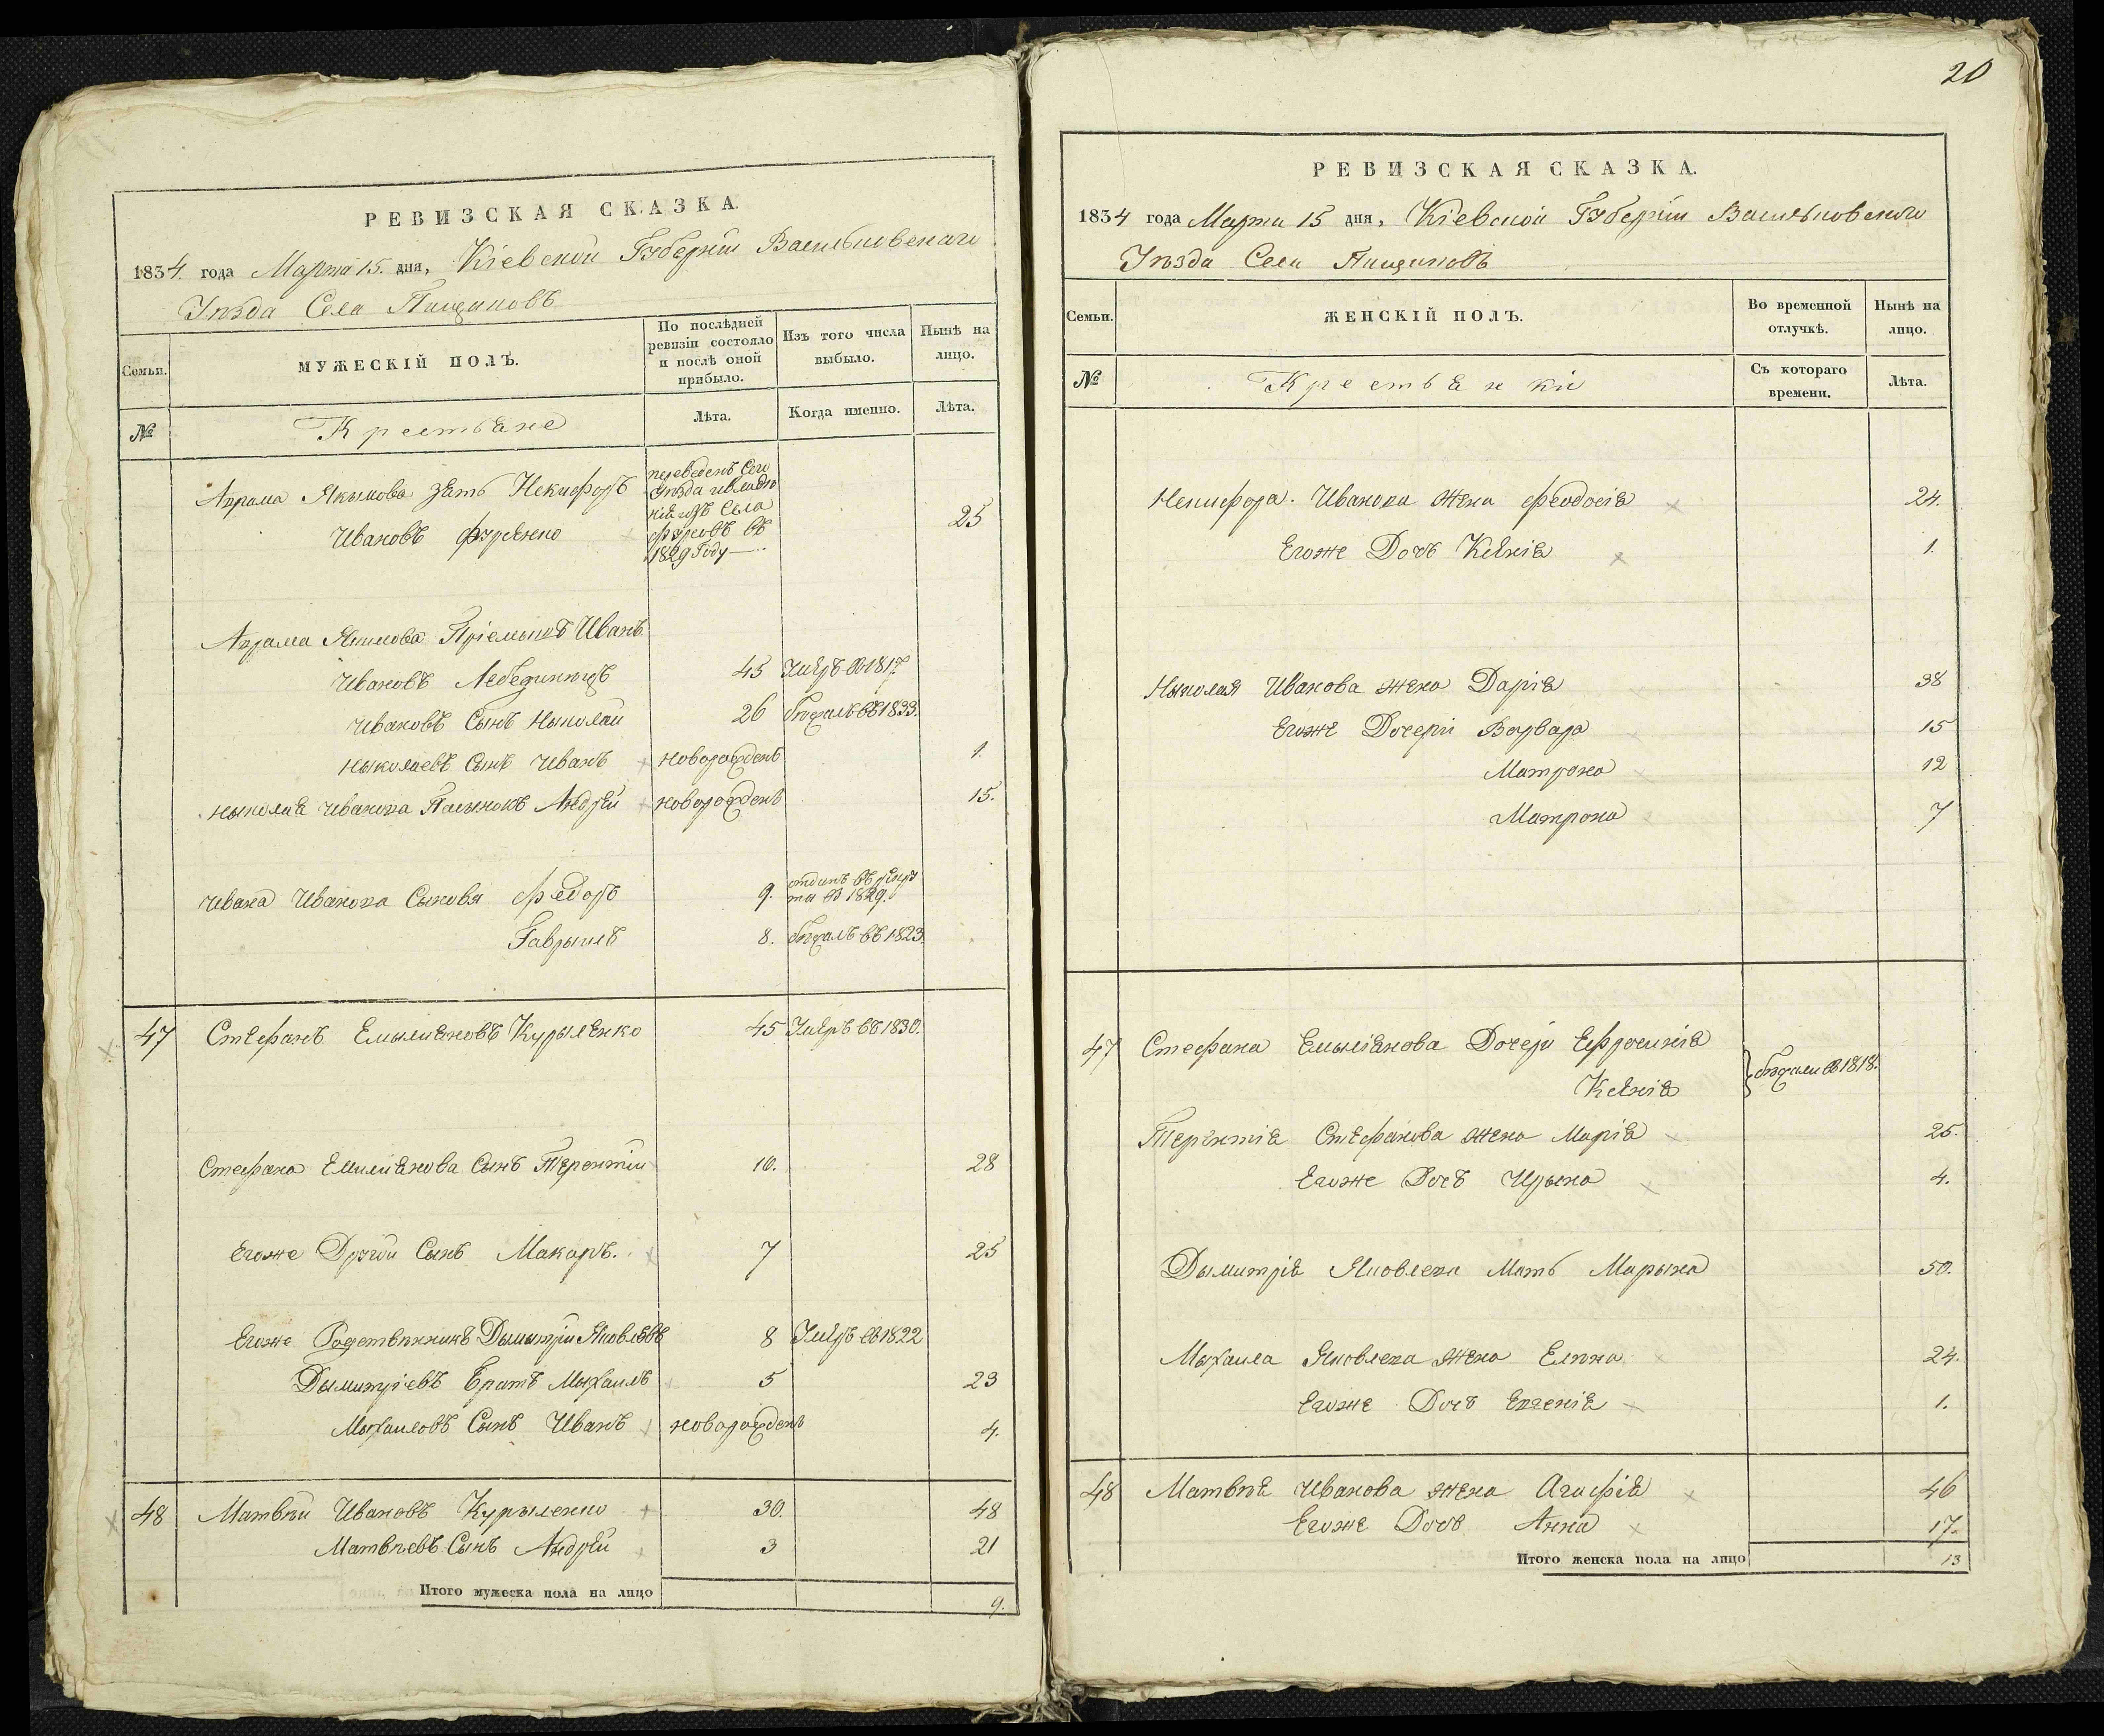 РЕВИЗСКАЯ СКАЗКА.
1834. года Марта 15. дня, Кіевской Губерніи Васильковскаго
Уѣзда Села Пищиковъ
Семьи.
МУЖЕСКІЙ ПОЛЪ.
По послѣдней
ревизіи состояло
и послѣ оной
прибыло.
Изъ того числа
выбыло.
Нынѣ на
лицо.
№
Крестьяне
Лѣта.
Когда именно.
Лѣта.
Аврама Якымова зять Некифоръ
Ивановъ
переведенъ Сего
Уѣзда
изъ Села
въ
1829 Году
25
Аврама Якимова Пріемышъ Иванъ
Ивановъ 45 Умеръ въ 1817
Ивановъ Сынъ Ныколай 26 бѣжалъ въ 1833.
Ныколаевъ Сынъ Иванъ новорожденъ 1.
Ныколая Иванова Пасынокъ Андрей новорожденъ 15.
Ивана Иванова Сыновя Федоръ 9. отданъ въ рекру
ты въ 1829.
Гаврыилъ 8. бѣжалъ въ 1823.
47 Стефанъ Емылияновъ Курыленко 45 Умеръ въ 1830.
Стефана Емилиянова Сынъ Терентій 10. 28
Егоже Другій Сынъ Макаръ. 7 25
Егоже Родственникъ Дымытрій Яковлевъ 8 Умеръ въ 1822
Дымитріевъ Братъ Мыхаилъ 5 23
Мыхаиловъ Сынъ Иванъ новорожденъ 4.
48 Матвѣй Ивановъ Курыленко 30. 48
Матвѣевъ Сынъ Андрей 3 21
Итого мужеска пола на лицо 9.
20
РЕВИЗСКАЯ СКАЗКА.
1834 года Марта 15 дня, Кіевской Губерніи Васильковскаго
Уѣзда Села Пищиковъ
Семьи.
ЖЕНСКІЙ ПОЛЪ.
Во временной
отлучкѣ.
Нынѣ на
лицо.
№
Крестьянки
Съ котораго
времени.
Лѣта.
Некифора Иванова жена Феодосія 24.
Егоже Дочь Ксенія 1.
Ныколая Иванова жена Дарія 38
Егоже Дочери Варвара 15
Матрона 12
Матрона 7
47 Стефана Емыліянова Дочери Ефросинія
Ксенія
бѣжали въ 1818.
Терентія Стефанова жена Марія 25.
Егоже Дочь Ирына 4.
Дымитрія Яковлева Мать Марына 50.
Мыхаила Яковлева жена Елена 24.
Егоже Дочь Евгенія 1.
48 Матвѣя Иванова жена Агафія 46
Егоже Дочь Анна 17.
Итого женска пола на лицо 13